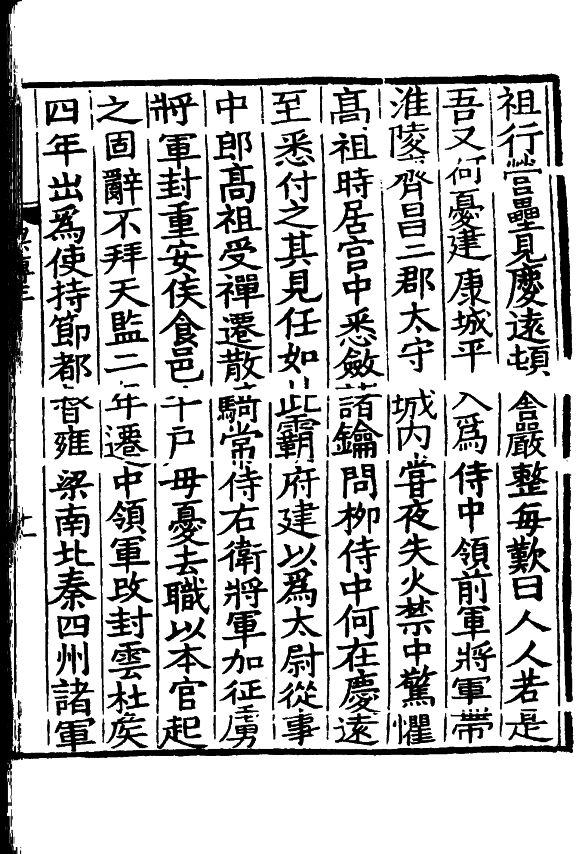 祖行營壘見慶遠頓舍嚴整每歎曰人人若是
吾又何憂建康城平入爲侍中領前軍將軍帶
淮陵齊昌二郡太守城內嘗夜失火禁中驚懼
髙祖時居宫中悉斂諸鑰問柳侍中何在慶遠
至悉付之其見任如此霸府建以爲太尉從事
中郎髙祖受禪遷散騎常侍右衛將軍加征虜
將軍封重安侯食邑千戸毋憂去職以本官起
之固辭不拜天監二年遷中領軍改封雲杜矦
四年出爲使持節都督雍梁南北秦四州諸軍